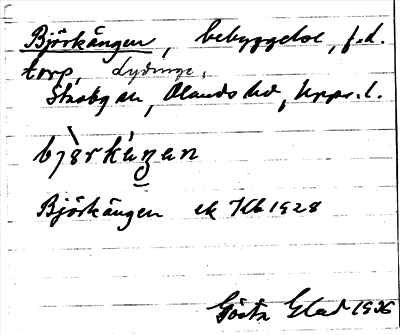 Björkängen, bebyggelse, f.d.
torp, Lydinge,
Stavby sn, Olands hd, Upps. l.
bjò̈rkáŋan
Björkängen ek Hb 1928
Gösta Elad 1936